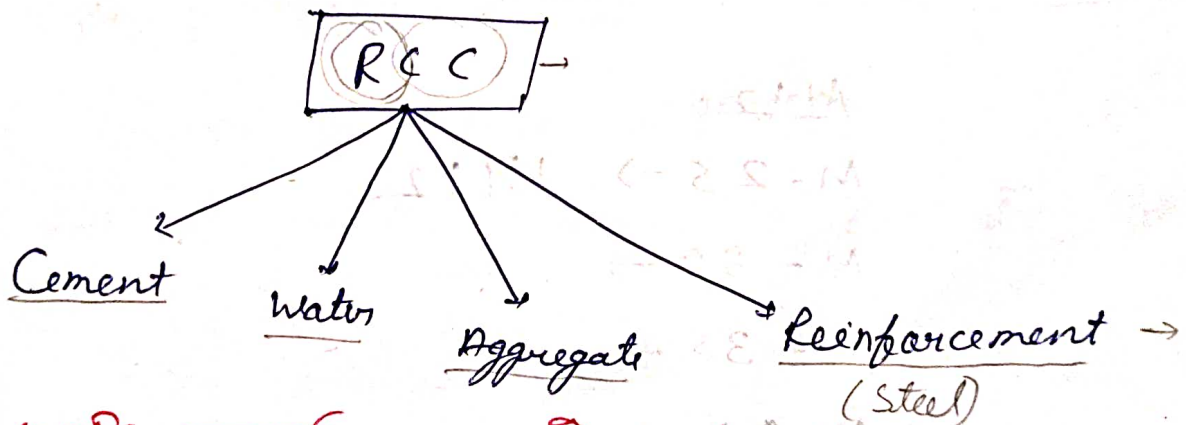 RCC →
Cement
Water
Aggregate
Reinforcement →
(Steel)